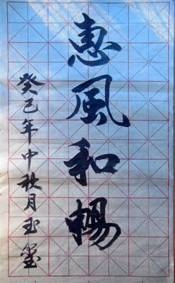 惠風和暢
癸巳年中秋月玉玺